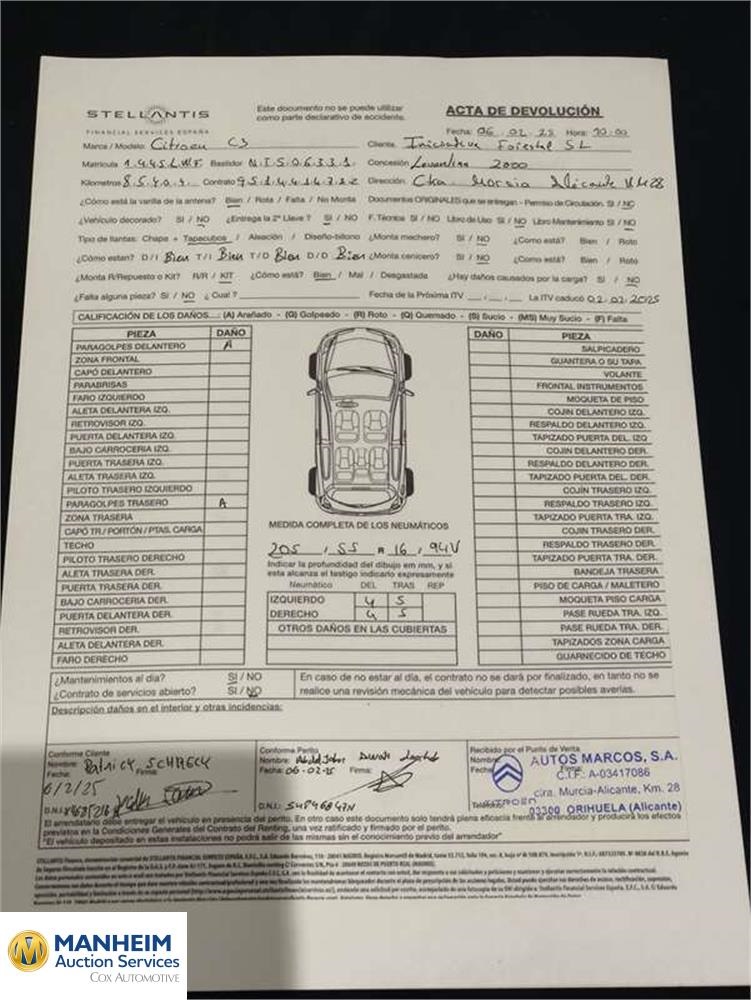 STELLANTIS
FINANCIAL SERVICES ESPAÑA
Este documento no se puede utilizar
como parte declarativo de accidente.
ACTA DE DEVOLUCIÓN
Fecha: 06.02.25 Hora: 10:00
Marca / Modelo: Citroen C3 Cliente: Forestal SL
Matrícula Bastidor Concesión 2000
Kilometros Contrato Dirección: Murcia Alicante
¿Cómo está la varilla de la antena? Bien / Rota / Falta / No Monta Documentos ORIGINALES que se entregan - Permiso de Circulación. SI / NO
¿Vehículo decorado? SI / NO ¿Entrega la 2ª Llave? SI / NO F. Técnica SI / NO Libro de Uso SI / NO Libro Mantenimiento SI / NO
Tipo de llantas: Chapa + Tapacubos / Aleación / Diseño-biltono ¿Monta mechero? SI / NO ¿Como está? Bien / Roto
¿Cómo estan? D/I Bien T/I Bien T/D Bien D/D Bien ¿Monta cenicero? SI / NO ¿Como está? Bien / Roto
¿Monta R/Repuesto o Kit? R/R / KIT ¿Cómo está? Bien / Mal / Desgastada ¿Hay daños causados por la carga? SI / NO
¿Falta alguna pieza? SI / NO ¿Cual? Fecha de la Próxima ITV La ITV caducó 02.02.2025
CALIFICACIÓN DE LOS DAÑOS....: (A) Arañado - (G) Golpeado - (R) Roto - (Q) Quemado - (S) Sucio - (MS) Muy Sucio - (F) Falta
PIEZA DAÑO
PARAGOLPES DELANTERO A
ZONA FRONTAL
CAPÓ DELANTERO
PARABRISAS
FARO IZQUIERDO
ALETA DELANTERA IZQ.
RETROVISOR IZQ.
PUERTA DELANTERA IZQ.
BAJO CARROCERIA IZQ.
PUERTA TRASERA IZQ.
ALETA TRASERA IZQ.
PILOTO TRASERO IZQUIERDO
PARAGOLPES TRASERO A
ZONA TRASERA
CAPÓ TR./ PORTÓN / PTAS. CARGA
TECHO
PILOTO TRASERO DERECHO
ALETA TRASERA DER.
PUERTA TRASERA DER.
BAJO CARROCERIA DER.
PUERTA DELANTERA DER.
RETROVISOR DER.
ALETA DELANTERA DER.
FARO DERECHO
MEDIDA COMPLETA DE LOS NEUMÁTICOS
205 , 55 R 16 , 94V
Indicar la profundidad del dibujo en mm, y si
esta alcanza el testigo indicarlo expresamente
Neumático DEL TRAS REP
IZQUIERDO 4 5
DERECHO 4 5
OTROS DAÑOS EN LAS CUBIERTAS
DAÑO PIEZA
SALPICADERO
GUANTERA O SU TAPA
VOLANTE
FRONTAL INSTRUMENTOS
MOQUETA DE PISO
COJIN DELANTERO IZQ.
RESPALDO DELANTERO IZQ.
TAPIZADO PUERTA DEL. IZQ
COJIN DELANTERO DER.
RESPALDO DELANTERO DER.
TAPIZADO PUERTA DEL. DER.
COJÍN TRASERO IZQ.
RESPALDO TRASERO IZQ.
TAPIZADO PUERTA TRA. IZQ.
COJIN TRASERO DER.
RESPALDO TRASERO DER.
TAPIZADO PUERTA TRA. DER.
BANDEJA TRASERA
PISO DE CARGA / MALETERO
MOQUETA PISO CARGA
PASE RUEDA TRA. IZQ.
PASE RUEDA TRA. DER.
TAPIZADOS ZONA CARGA
GUARNECIDO DE TECHO
¿Mantenimientos al día? SI / NO
¿Contrato de servicios abierto? SI / NO
En caso de no estar al día, el contrato no se dará por finalizado, en tanto no se
realice una revisión mecánica del vehículo para detectar posibles averías.
Descripción daños en el interior y otras incidencias:
Conforme Cliente
Nombre: Patrick
Fecha: Firma:
6/2/25
D.N.I.
Conforme Perito
Nombre:
Fecha: 06-02-25 Firma:
D.N.I.
Recibido por el Punto de Venta
Nombre
Fecha
AUTOS MARCOS, S.A.
C.I.F: A-03417086
Ctra. Murcia-Alicante, Km. 28
03300 ORIHUELA (Alicante)
El arrendatario debe entregar el vehículo en presencia del perito. En otro caso este documento solo tendrá plena eficacia frente al arrendador y producirá los efectos
previstos en la Condiciones Generales del Contrato del Renting, una vez ratificado y firmado por el perito.
"El vehículo depositado en estas instalaciones no podrá salir de las mismas sin el conocimiento previo del arrendador"
MANHEIM
Auction Services
COX AUTOMOTIVE